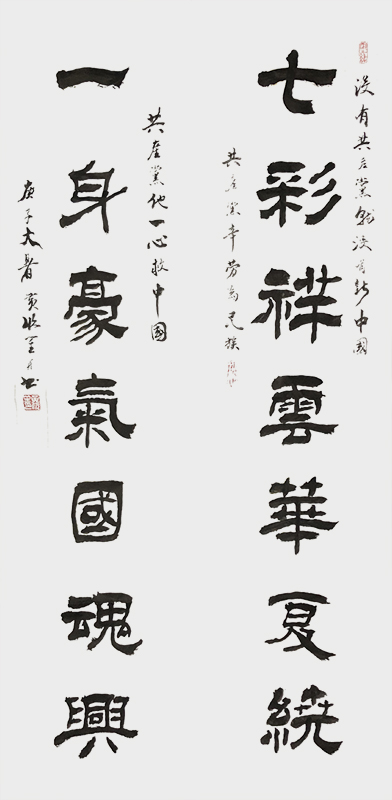 没有共产党就没有新中国
七彩祥雲華夏繞
共产党辛劳为民族
共产党他一心救中国
一身豪氣國魂興
庚子大暑